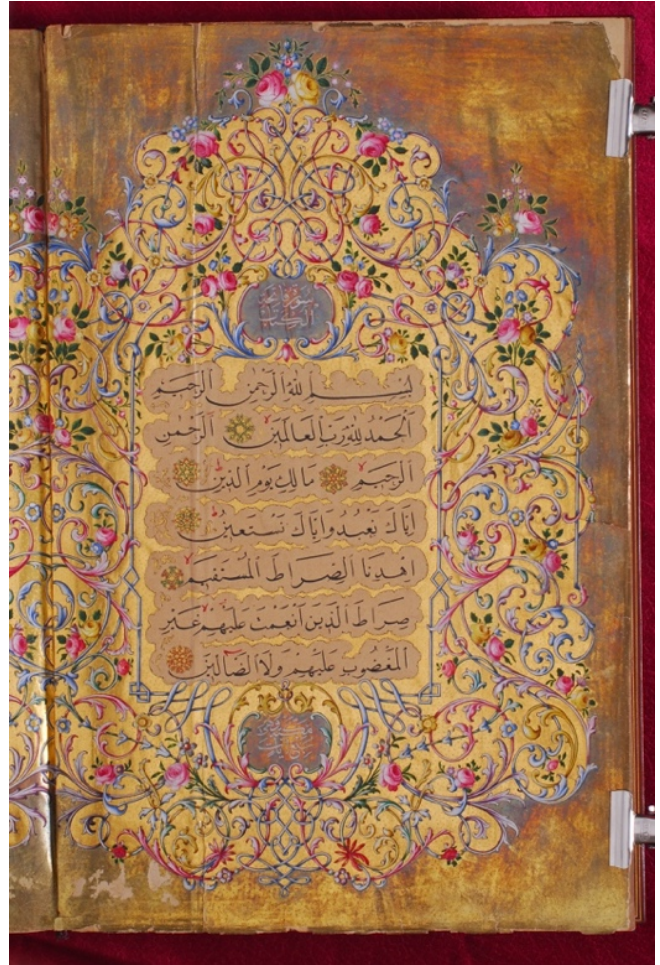 سورة فاتحة
الكتاب
بسم الله الرحمن الرحيم
الحمد لله رب العالمين الرحمن
الرحيم مالك يوم الدين
اياك نعبد واياك نستعين
اهدنا الصراط المستقيم
صراط الذين انعمت عليهم غير
المغضوب عليهم ولا الضالين